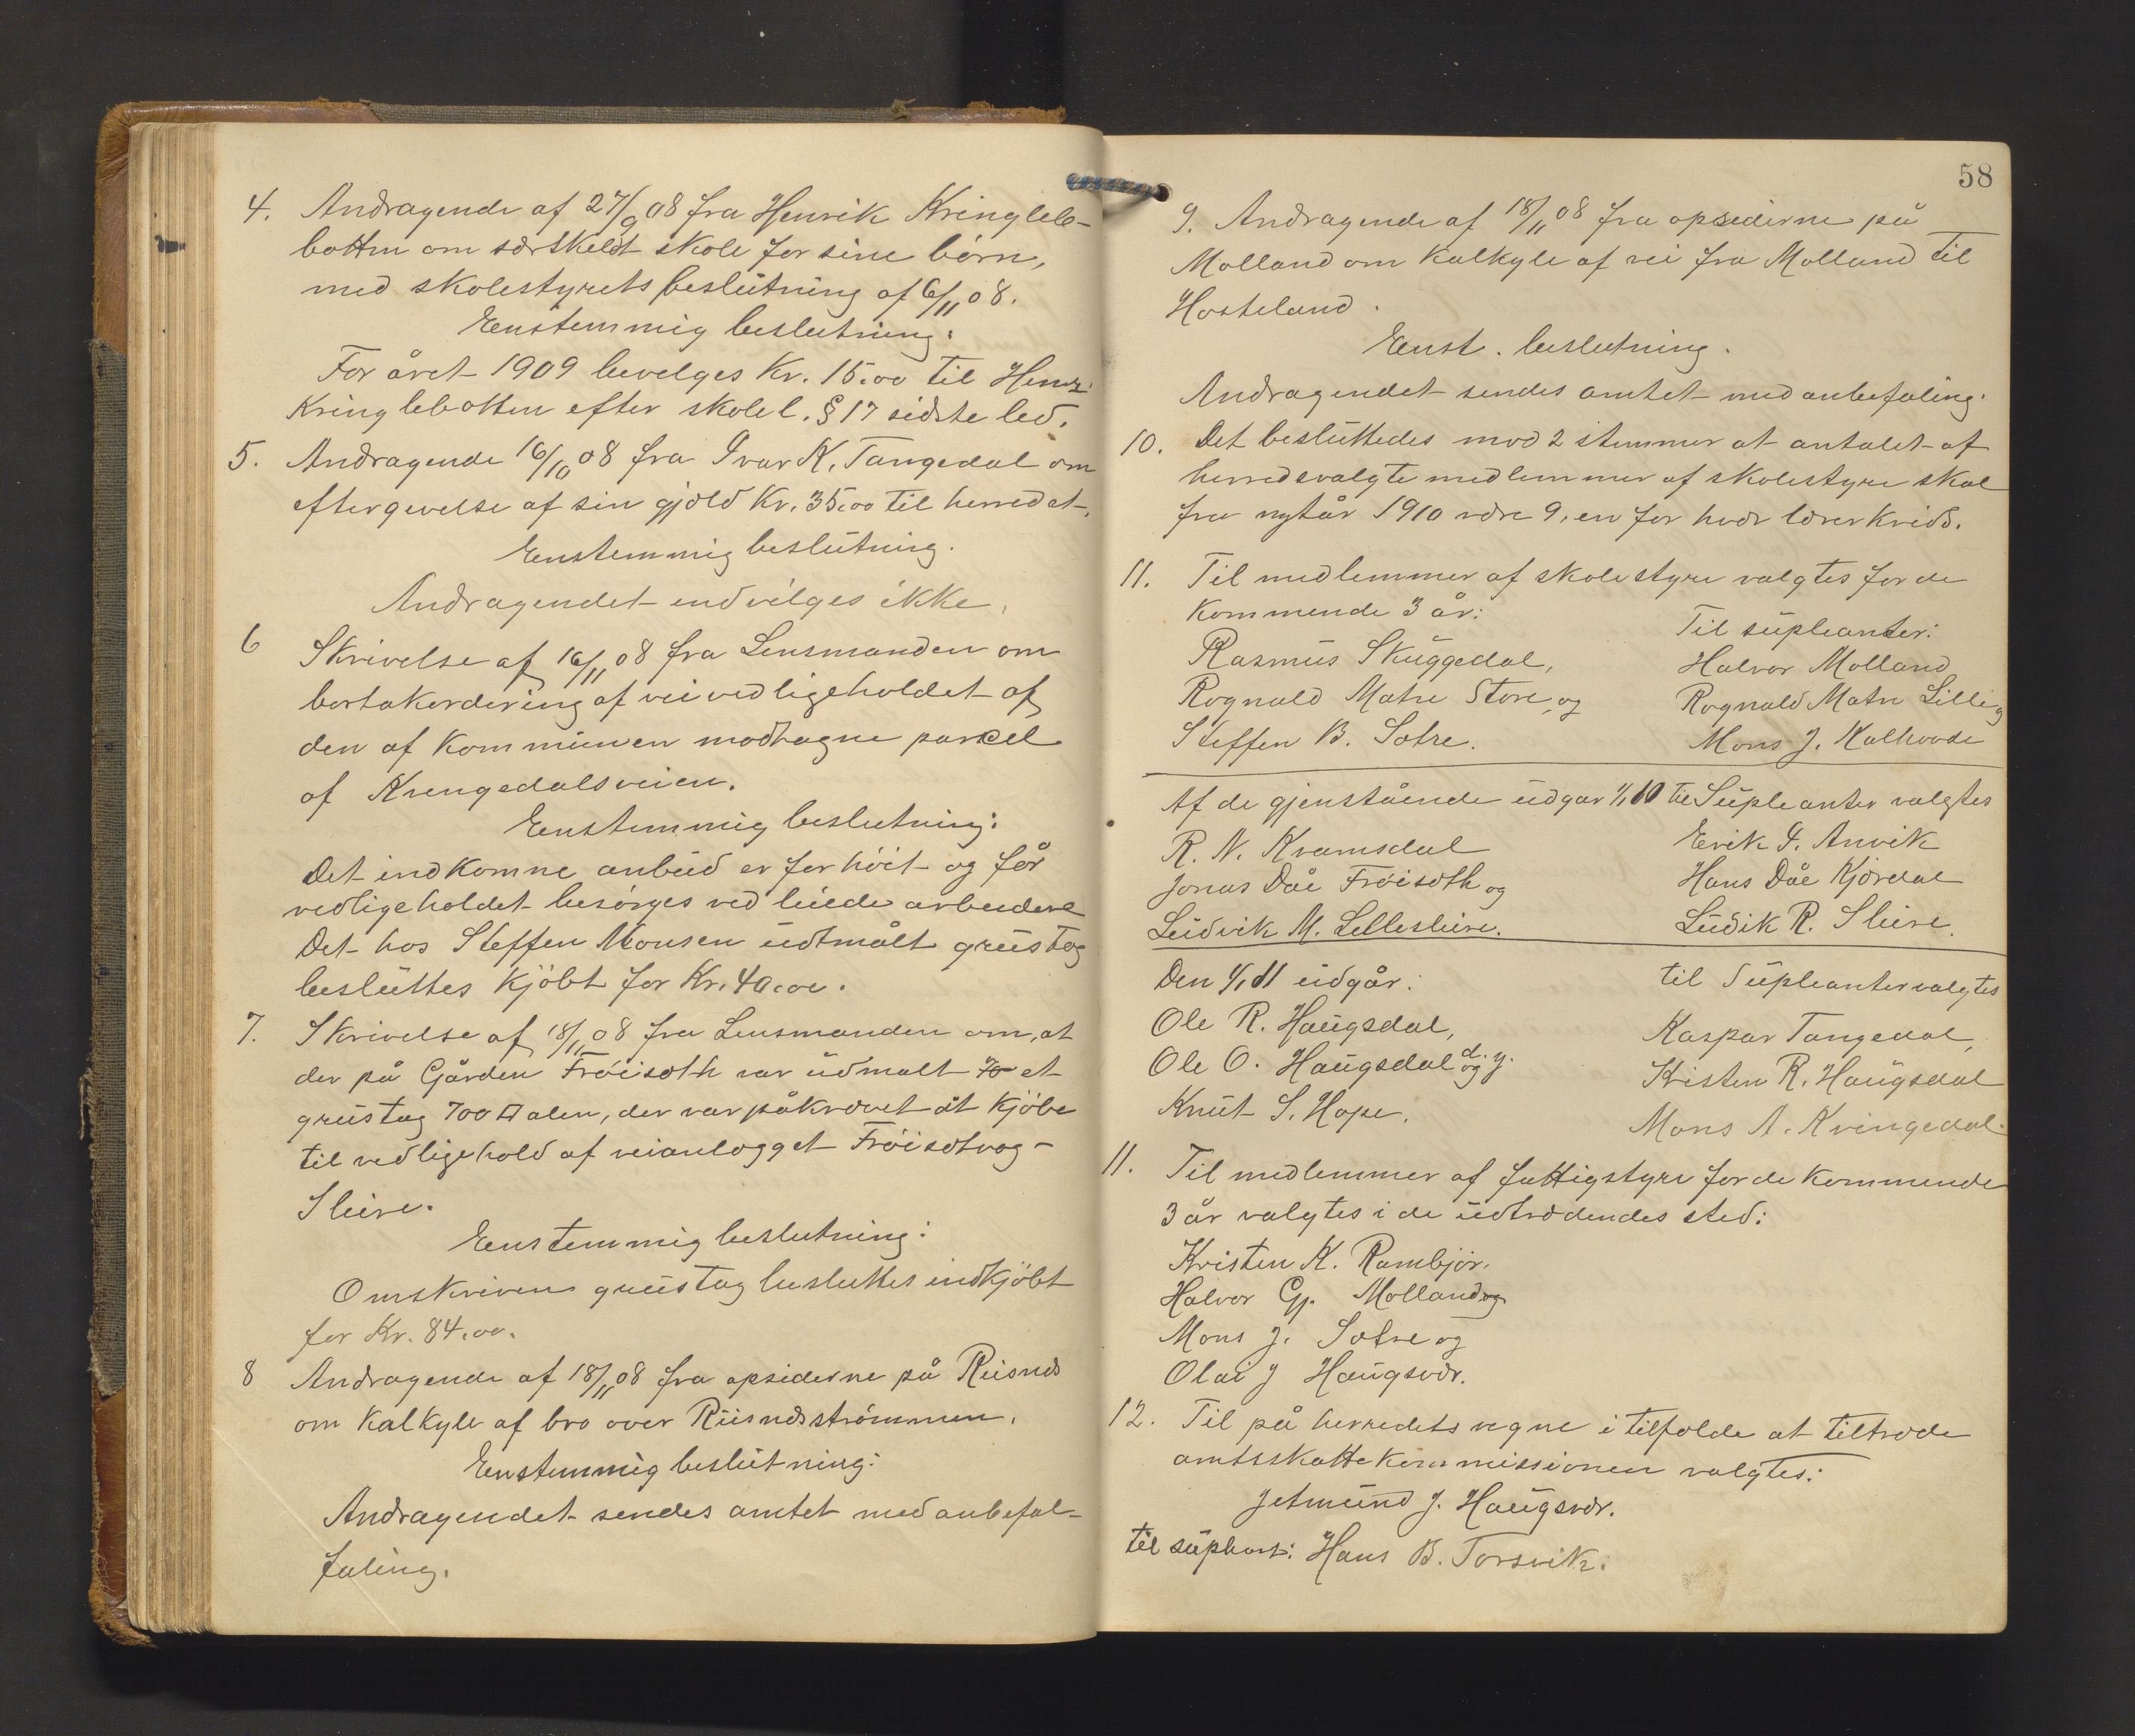 4. Andragende af 27/9 08 fra Henrik Kringleb-
botten om særskeldt skole for sine børn,
med skolestyrets beslutning af 6/11 08.
Enstemmig beslutning:
For året 1909 bevelges Kr. 15.00 til Henr.
Kringlebotten efter skolel. § 17 sidste led.
5. Andragende 16/10 08 fra Ivar K. Tangedal om
eftergivelse af sin gjæld Kr. 35.00 til herredet.
Enstemmig beslutning.
Andragendet indvilges ikke.
6 Skrivelse af 16/11 08 fra Lensmanden om
bortakordering af veivedligeholdet af
den af Kommunen modtagne parcel
af Kringedalsveien.
Enstemmig beslutning:
Det indkomne anbud er for høit og får
vedligeholdet besørges ved leiede arbeidere
Det hos Steffen Monsen udtmålt grustag
besluttes kjøbt for Kr. 40.00.
7. Skrivelse af 18/11 08 fra Lensmanden om, at
der på Gården Frøisæth var udmalt et
grustag 700 □ alen, der var påkrævet at kjøbe
til vedligehold af veianlægget Frøisætvåg-
Sleire.
Enstemmig beslutning:
Omskreven grustag besluttes indkjøbt
for Kr. 84.00.
8 Andragende af 18/11 08 fra opsiderne på Risnes
om Kalkyle af bro over Riisnesstrømmen.
Enstemmig beslutning:
Andragendet sendes amtet med anbefal-
faling.
58
9. Andragende af 18/11 08 fra opsiderne på
Molland om Kalkyle af vei fra Molland til
Hosteland.
Enst. beslutning.
Andragendet sendes amtet med anbefaling.
10. Det besluttedes mod 2 stemmer at antalet af
herredsvalgte medlemmer af skolestyre skal
fra nytår 1910 være 9, en for hvær lærerkrids.
11. Til medlemmer af skolestyre valgtes for de
Kommende 3 år:
Til supleanter:
Rasmus Skuggedal,
Halvor Molland
Rognald Matre Store, og
Rognald Matre Lille og
Steffen B. Sætre.
Mons J. Kalhovde
Af de gjenstående udgår 1/1 10 til Supleanter valgtes
R. N. Kvamsdal
Erik I. Anvik
Jonas Dåe Frøisæth og
Hans Dåe Kjørdal
Ludvik M. Lillesleire.
Ludik R. Sleire.
Den 1/1 11 udgår:
til Supleanter valgtes
Ole R. Haugsdal,
Kaspar Tangedal,
Ole O. Haugsdal d. y. og
Kristen R. Haugsdal
Knut S. Hope.
Mons A. Kringedal.
11. Til medlemmer af fattigstyre for de Kommende
3 år valgtes i de udtrædendes sted:
Kristen K. Rambjør.
Halvor Gj. Molland og
Mons J. Sætre og
Olai J Haugsvær.
12. Til på herredets vegne i tilfælde at tiltræde
amtsskattekommissionen valgtes:
Jetmund J. Haugsvær.
til supleant: Hans B. Torsvik.